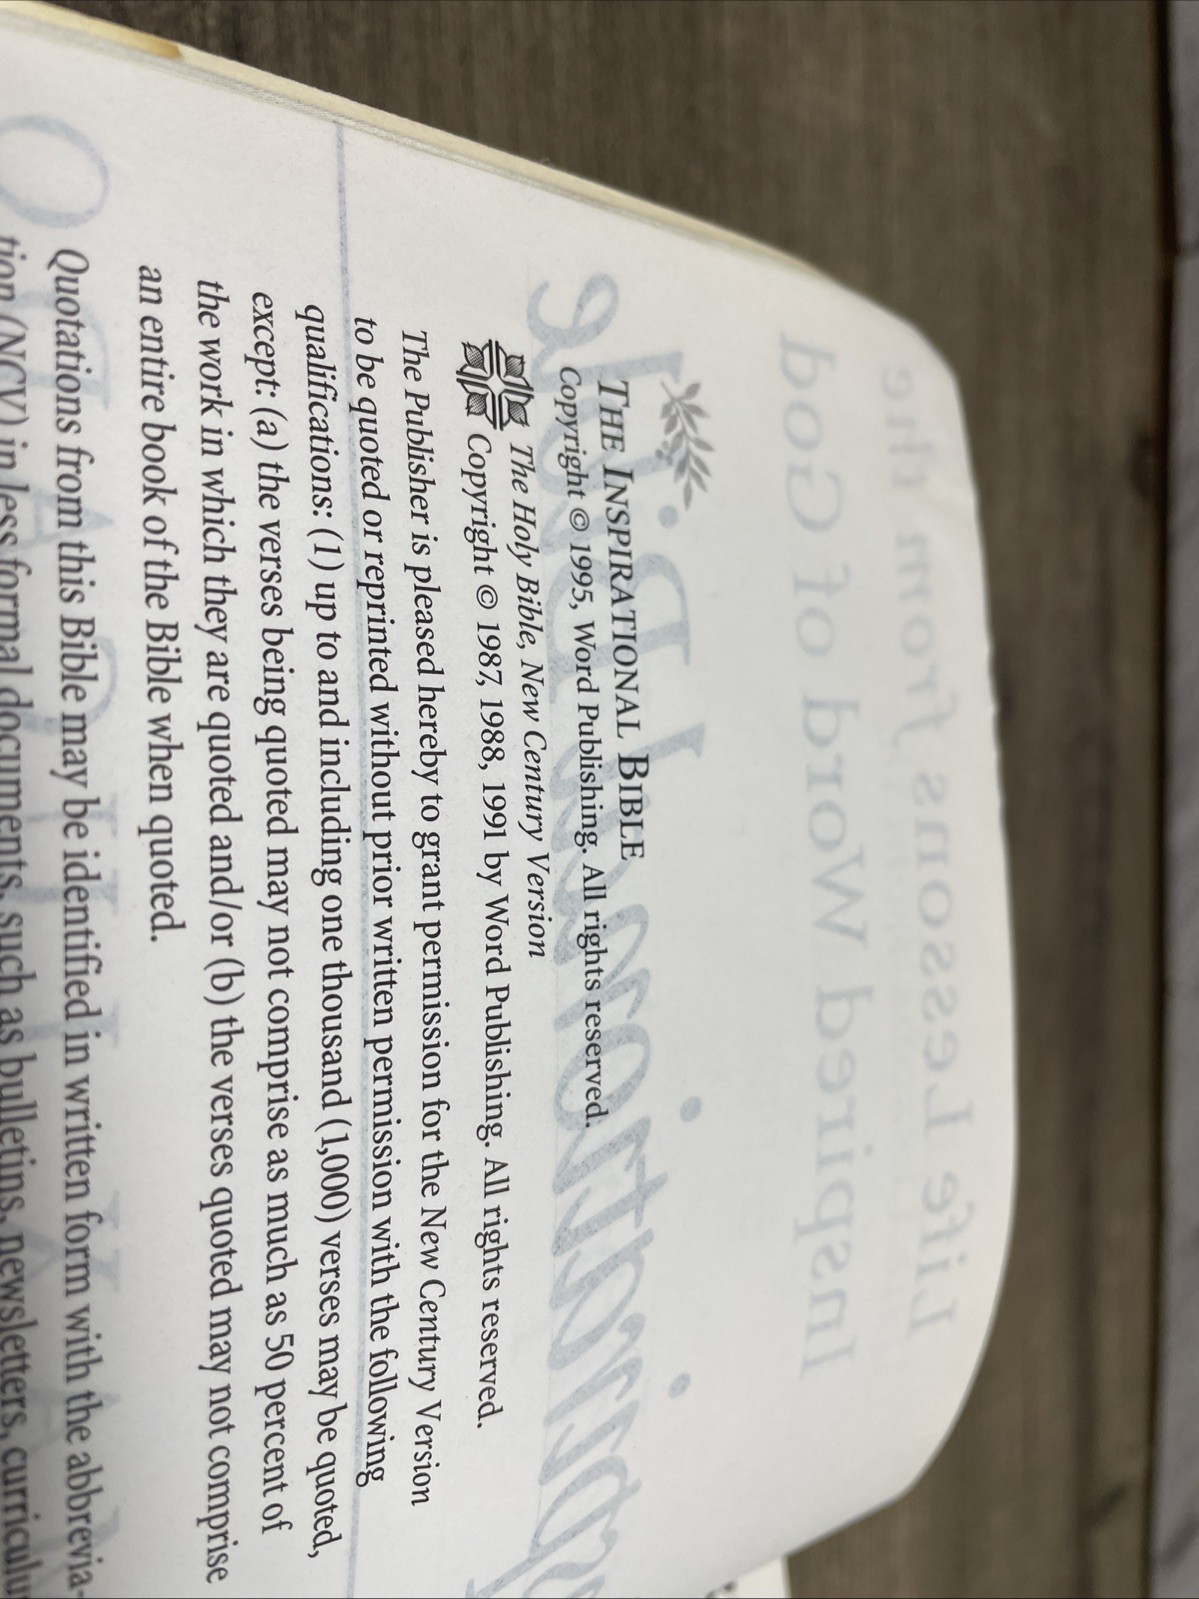 THE INSPIRATIONAL BIBLE
Copyright © 1995, Word Publishing. All rights reserved.
The Holy Bible, New Century Version
Copyright © 1987, 1988, 1991 by Word Publishing. All rights reserved.
The Publisher is pleased hereby to grant permission for the New Century Version
to be quoted or reprinted without prior written permission with the following
qualifications: (1) up to and including one thousand (1,000) verses may be quoted,
except: (a) the verses being quoted may not comprise as much as 50 percent of
the work in which they are quoted and/or (b) the verses quoted may not comprise
an entire book of the Bible when quoted.
Quotations from this Bible may be identified in written form with the abbrevia-
tion (NCV) in less formal documents, such as bulletins, newsletters, curriculu
Life Lessons from the
Inspired Word of God
Inspirational Bible